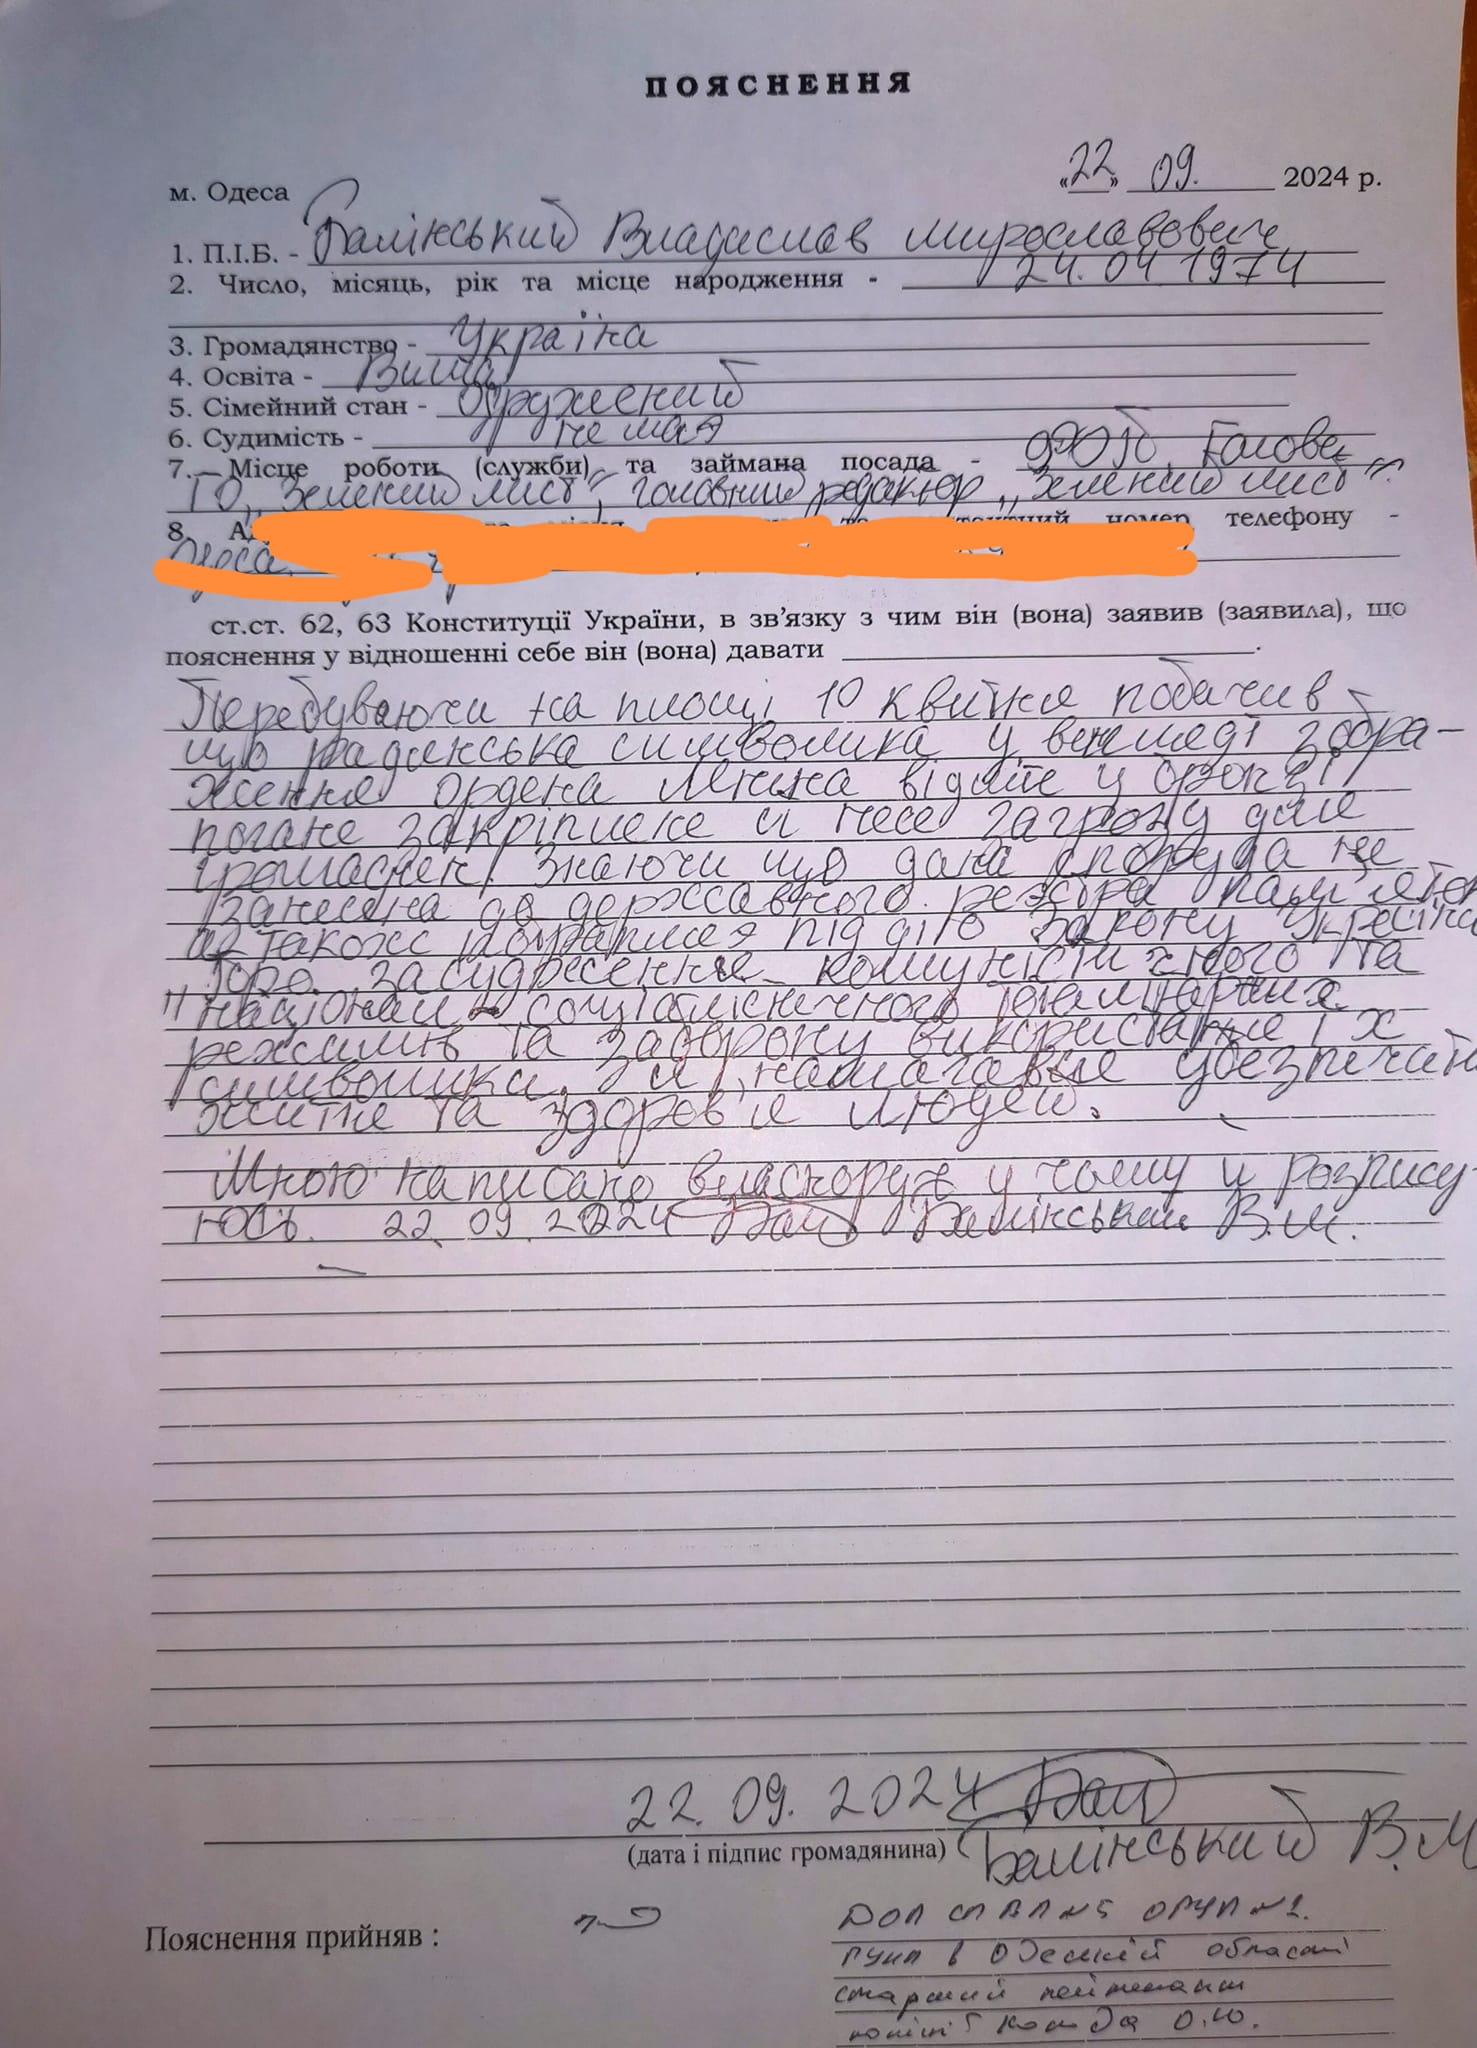 ПОЯСНЕННЯ
м. Одеса «22» 09. 2024 р.
1. П.І.Б. - Балінський Владислав Мирославович
2. Число, місяць, рік та місце народження - 24.04.1974
3. Громадянство - Україна
4. Освіта - Вища
5. Сімейний стан - одружений
6. Судимість - не має
7. Місце роботи (служби) та займана посада - ФОП, Голова
ГО „Зелений лист", головний редактор „Зелений лист"
8. номер телефону -
Одеса,
ст.ст. 62, 63 Конституції України, в зв'язку з чим він (вона) заявив (заявила), що
пояснення у відношенні себе він (вона) давати
Перебуваючи на площі 10 квітня побачив
що радянська символика у вигляді зобра-
ження ордена Леніна у бронзі,
погане закріплене и несе загрозу для
громадян, знаючи що дана споруда не
занесена до державного реєстра памʼяток
а також підпадає під дію Закону України
"про засудження комуністичного та
націонал-соціалістичного тоталітарних
режимів та заборону використання їх
символики, я намагався убезпечити
життя та здоров'я людей.
Мною написано власноруч у чому и розпису
юсь. 22.09.2024 Балінський В.М.
22.09.2024
(дата і підпис громадянина) Балінський В.М
Пояснення прийняв :
ДОП СП ВП №5 ОРУП №1
ГУНП в Одеській області
старший лейтенант
поліції О.Ю.